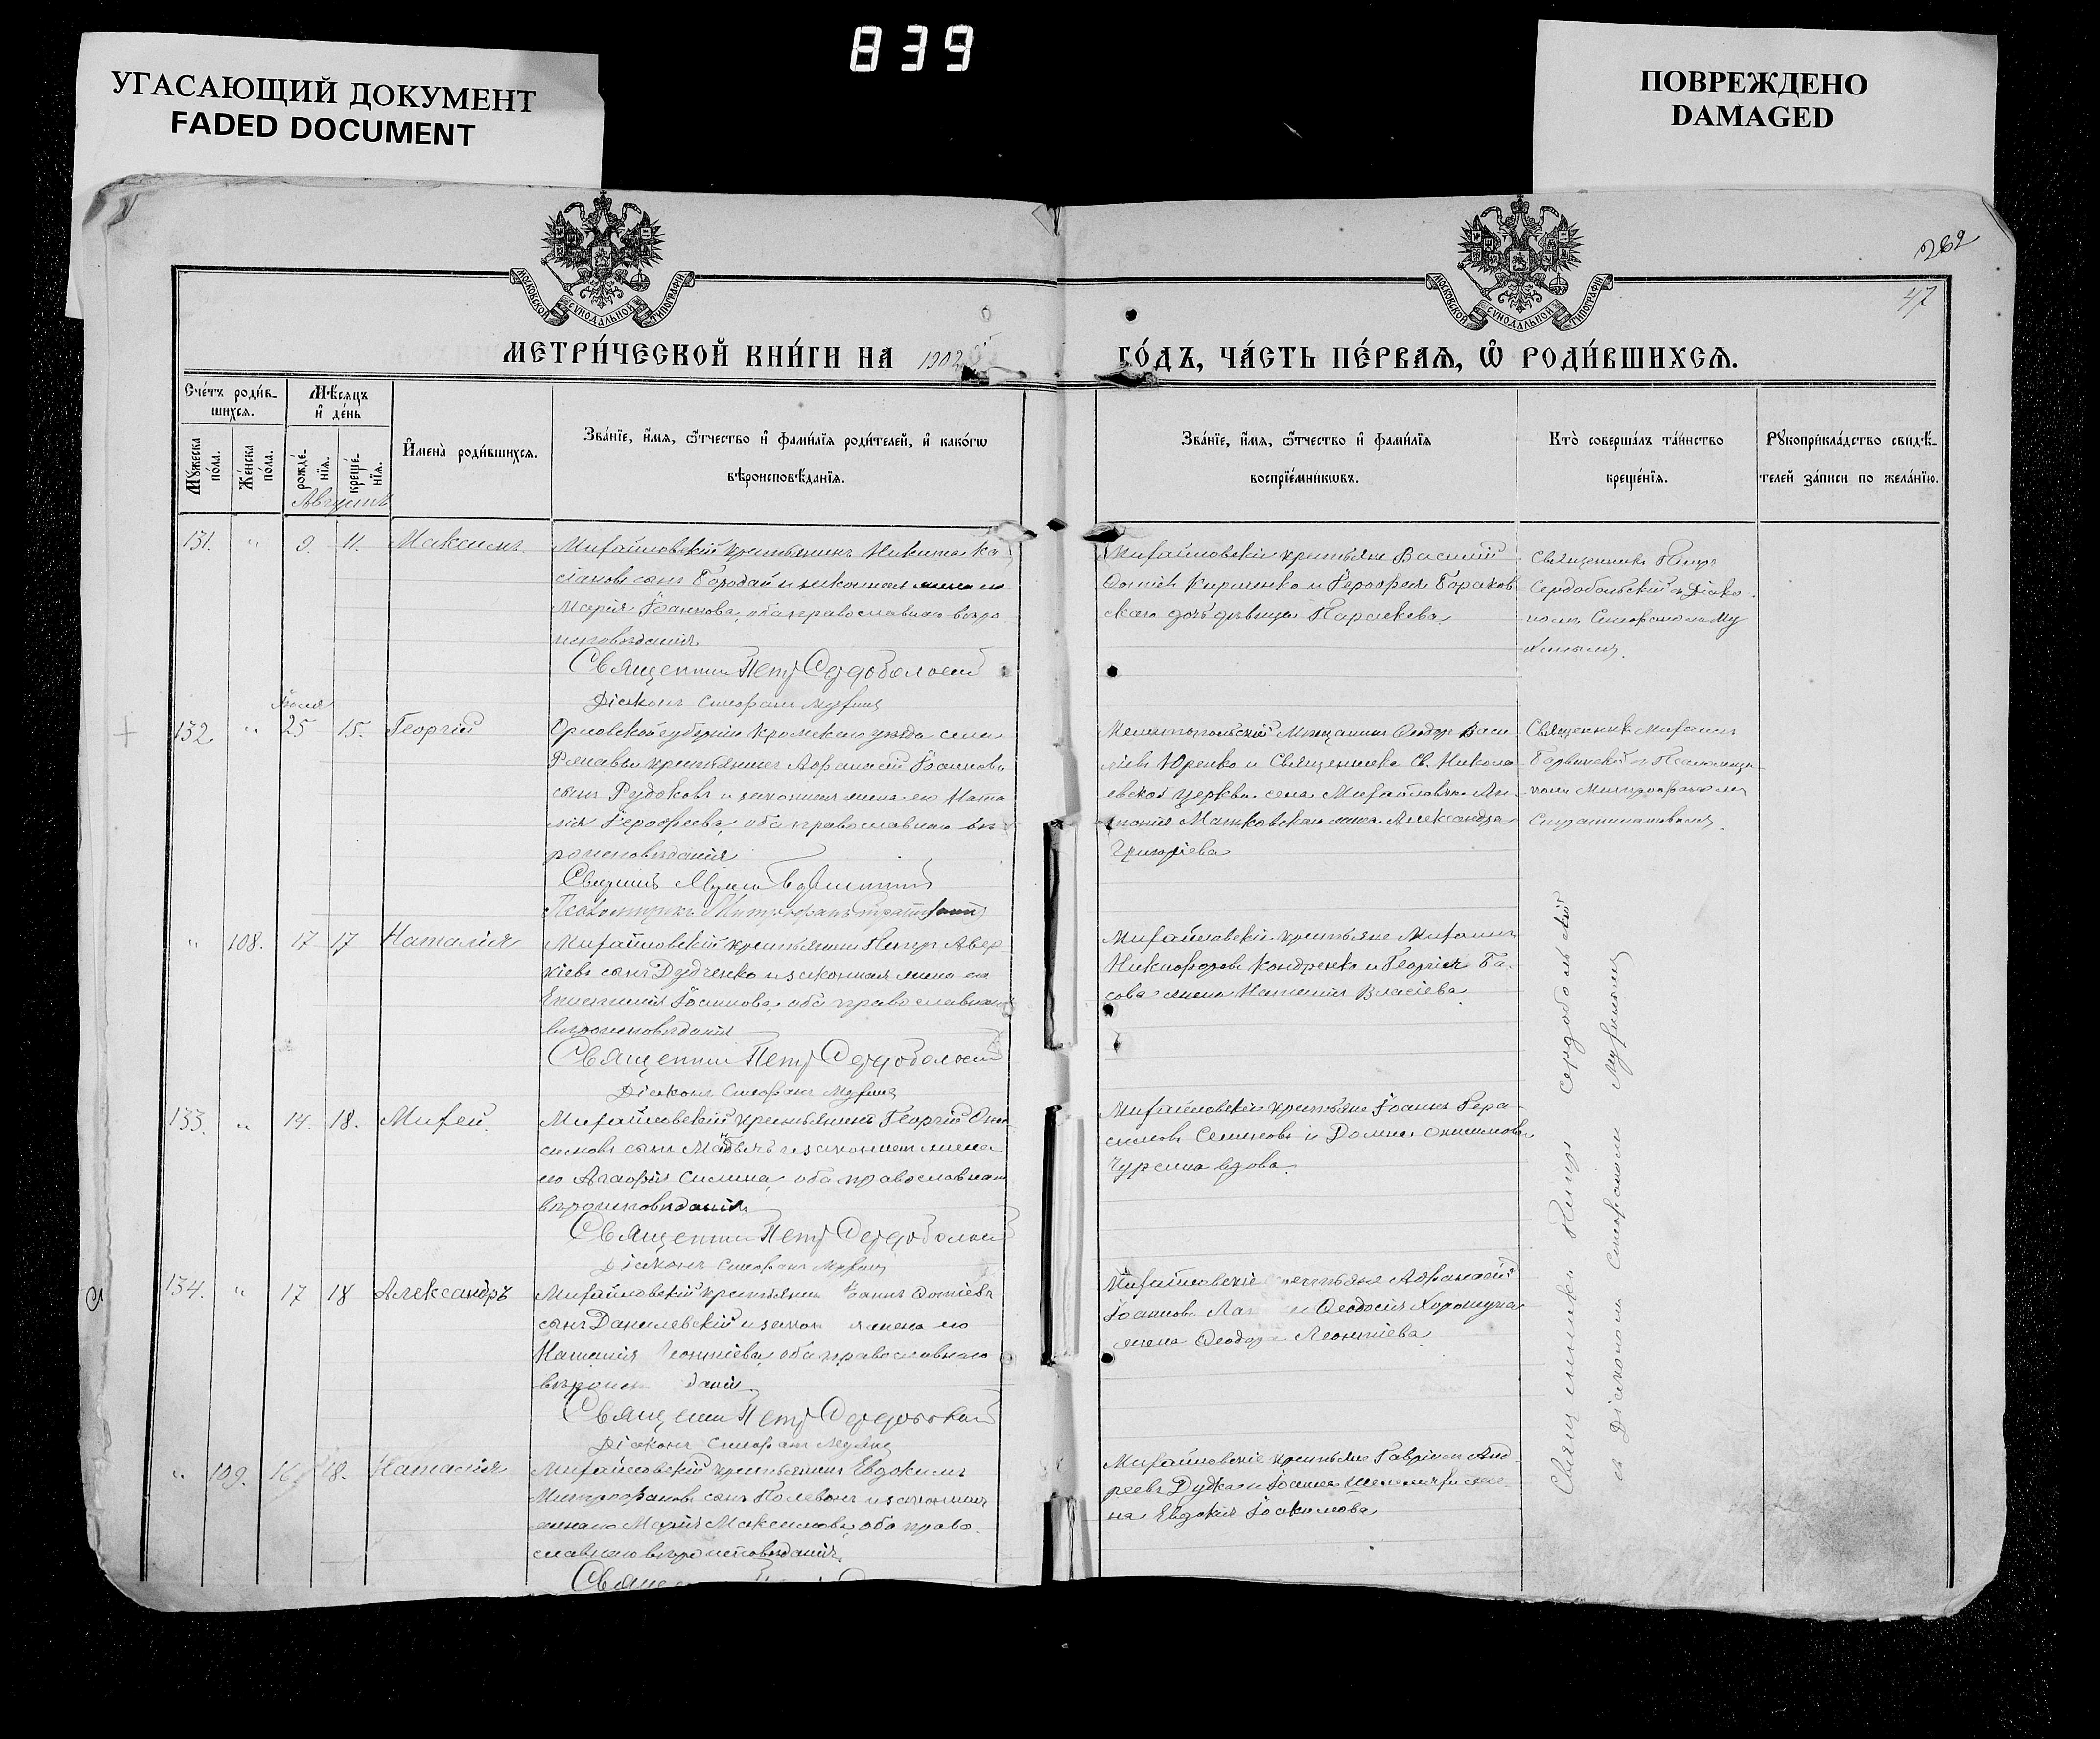 839
УГАСАЮЩИЙ ДОКУМЕНТ
FADED DOCUMENT
ПОВРЕЖДЕНО
DAMAGED
262
47
МОСКОВСКОЙ СѴНОДАЛЬНОЙ ТИПОГРАФІИ
МОСКОВСКОЙ СѴНОДАЛЬНОЙ ТИПОГРАФІИ
МЕТРИ́ЧЕСКОЙ КНИ́ГИ НА 1902
ГО́ДЪ, ЧА́СТЬ ПЕ́РВАѦ, Ѿ РОДИ́ВШИХСѦ.
Сче́тъ роди́в-
шихсѧ.
Мѣ́сѧцъ
и҆ де́нь
Мꙋ́жеска по́ла.
Же́нска по́ла.
рожде́-
нїѧ.
креще́-
нїѧ.
И҆мена̀ роди́вшихсѧ.
Зва́нїе, и҆́мѧ, ѻ҆́тчество и҆ фами́лїѧ роди́телей, и҆ како́гѡ
вѣроисповѣ́данїѧ.
Зва́нїе, и҆́мѧ, ѻ҆́тчество и҆ фами́лїѧ
воспрїе́мникѡвъ.
Кто̀ соверша́лъ та́инство
креще́нїѧ.
Рꙋкоприкла́дство свидѣ́-
телей за́писи по жела́нїю.
Августъ
131. " 9. 11. Максимъ.
Михайловскій крестьянинъ Никита Ка
сіановъ сынъ Бородай и законная жена его
Марія Іоаннова, оба православнаго вѣро
исповѣданія
Священникъ Петръ Сердобольскій
Діаконъ Стефанъ Мухинъ
Михайловскіе крестьяне Василій
Фотіевъ Кириченко и Іерофея Бараков
скаго дочь дѣвица Параскева
Священникъ Петръ
Сердобольскій съ Діако-
номъ Стефаномъ Му
хинымъ.
Іюля
132 " 25 15. Георгій
Орловской губерніи Кромскаго уѣзда села
крестьянинъ Аѳанасій Іоанновъ
сынъ Рудаковъ и законная жена его Ната
лія Іерофеева, оба православнаго вѣ
роисповѣданія
Псаломщикъ Митрофанъ
Мелитопольскій Мѣщанинъ Ѳеодоръ Васи
ліевъ Юренко и Священника Св. Никола
евской церкви села Михайловки Ан-
тонія Матковскаго жена Александра
Григоріева
Священникъ Михаилъ
и Псаломщи-
комъ Митрофаномъ
" 108. 17 17 Наталія
Михайловскій крестьянинъ Петръ Авер
кіевъ сынъ Дудченко и законная жена его
Іоаннова, оба православнаго
вѣроисповѣданія
Священникъ Петръ Сердобольскій
Діаконъ Стефанъ Мухинъ
Михайловскіе крестьяне Михаилъ
Никифоровъ Кондренко и Георгія Ба-
сова жена Наталія Власіева
133. " 14. 18. Михей.
Михайловскій крестьянинъ Георгій Они
симовъ сынъ и законная жена
его Агафія Силина, оба православнаго
вѣроисповѣданія
Священникъ Петръ Сердобольскій
Діаконъ Стефанъ Мухинъ
Михайловскіе крестьяне Іоаннъ Гера-
симовъ Семиковъ и Домна Онисимова
Чурсина вдова
134. " 17 18 Александръ
Михайловскій крестьянинъ Іоаннъ Фотіевъ
сынъ Данилевскій и закон жена его
Наталія Леонтіева, оба православнаго
вѣроисп даніи
Священникъ Петръ Сердобольскій
Діаконъ Стефанъ Мухинъ
Михайловскіе крестьяне Аѳанасій
Іоанновъ и Ѳеодосія Хорошуна
жена Ѳеодора Леонтіева
" 109. 16 18. Наталія
Михайловскій крестьянинъ Евдокимъ
Митрофановъ сынъ Полевой и законная
жена его Марія Максимова, оба право-
славнаго вѣроисповѣданія
Михайловскіе крестьяне Гавріилъ Анд
реевъ Дудка и Іоанна же-
на Евдокія Іоакимова
Священникъ Петръ Сердобольскій
и Діакономъ Стефаномъ Мухинымъ